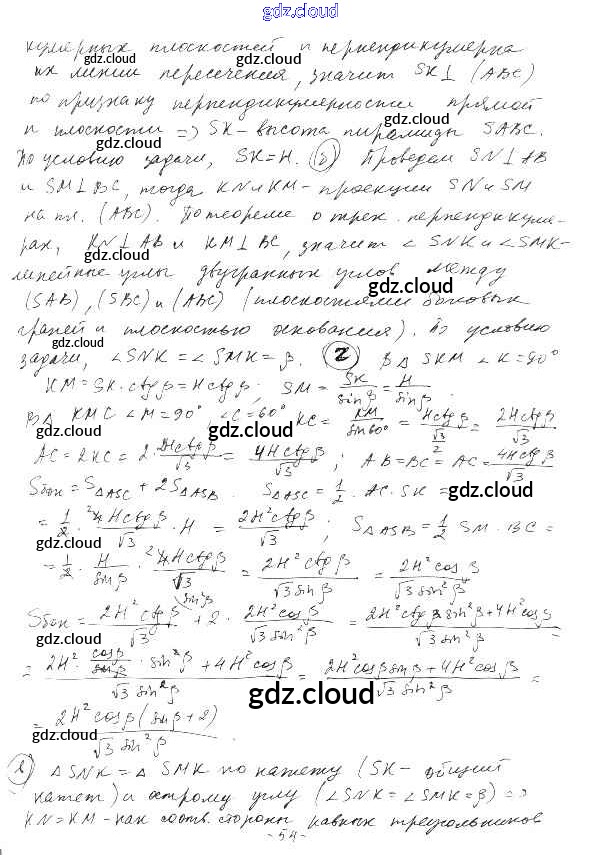 gdz.cloud
кулярных плоскостей и перпендикулярна
gdz.cloud gdz.cloud
их линии пересечения, значит SK⊥ (ABC)
по признаку перпендикулярности прямой
и плоскости => SK - высота пирамиды SABC.
gdz.cloud gdz.cloud
По условию задачи, SK=H. Проведем SN⊥AB
и SM⊥BC, тогда KN и KM - проекции SN и SM
на пл. (ABC). По теореме о трех перпендикуля-
gdz.cloud gdz.cloud
рах, KN⊥AB и KM⊥BC, значит ∠SNK и ∠SMK-
линейные углы двугранных углов между
(SAB), (SBC) и (ABC) (плоскостями боковых
gdz.cloud
граней и плоскостью основания). По условию
gdz.cloud
задачи, ∠SNK = ∠SMK = β. 2 В Δ SKM ∠K=90°
KM = SK·ctgβ = Hctgβ; SM = SK/sinβ = H/sinβ.
gdz.cloud
В Δ KMC ∠M=90° ∠C=60° KC = KM/sin60° = Hctgβ/(√3/2) = 2Hctgβ/√3
gdz.cloud
AC = 2KC = 2·2Hctgβ/√3 = 4Hctgβ/√3; AB=BC=AC=4Hctgβ/√3
Sбок = S△ASC + 2S△ASB. S△ASC = 1/2·AC·SK =
gdz.cloud gdz.cloud
= 1/2·4Hctgβ/√3·H = 2H²ctgβ/√3; S△ASB = 1/2 SM·BC =
gdz.cloud gdz.cloud
= 1/2·H/sinβ·4Hctgβ/√3 = 2H²ctgβ/√3 sinβ = 2H²cosβ/√3 sin²β
Sбок = 2H²ctgβ/√3 + 2·2H²cosβ/√3 sin²β = 2H²ctgβ sin²β+4H²cosβ/√3 sin²β
gdz.cloud gdz.cloud
= 2H²·cosβ/sinβ·sin²β + 4H²cosβ/√3 sin²β = 2H²cosβ sinβ + 4H²cosβ/√3 sin²β =
gdz.cloud gdz.cloud
= 2H²cosβ(sinβ+2)/√3 sin²β
gdz.cloud
Δ SNK = Δ SMK по катету (SK - общий
gdz.cloud
катет) и острому углу (∠SNK=∠SMK=β) =>
KN=KM - как соотв. стороны равных треугольников
gdz.cloud gdz.cloud
-54-